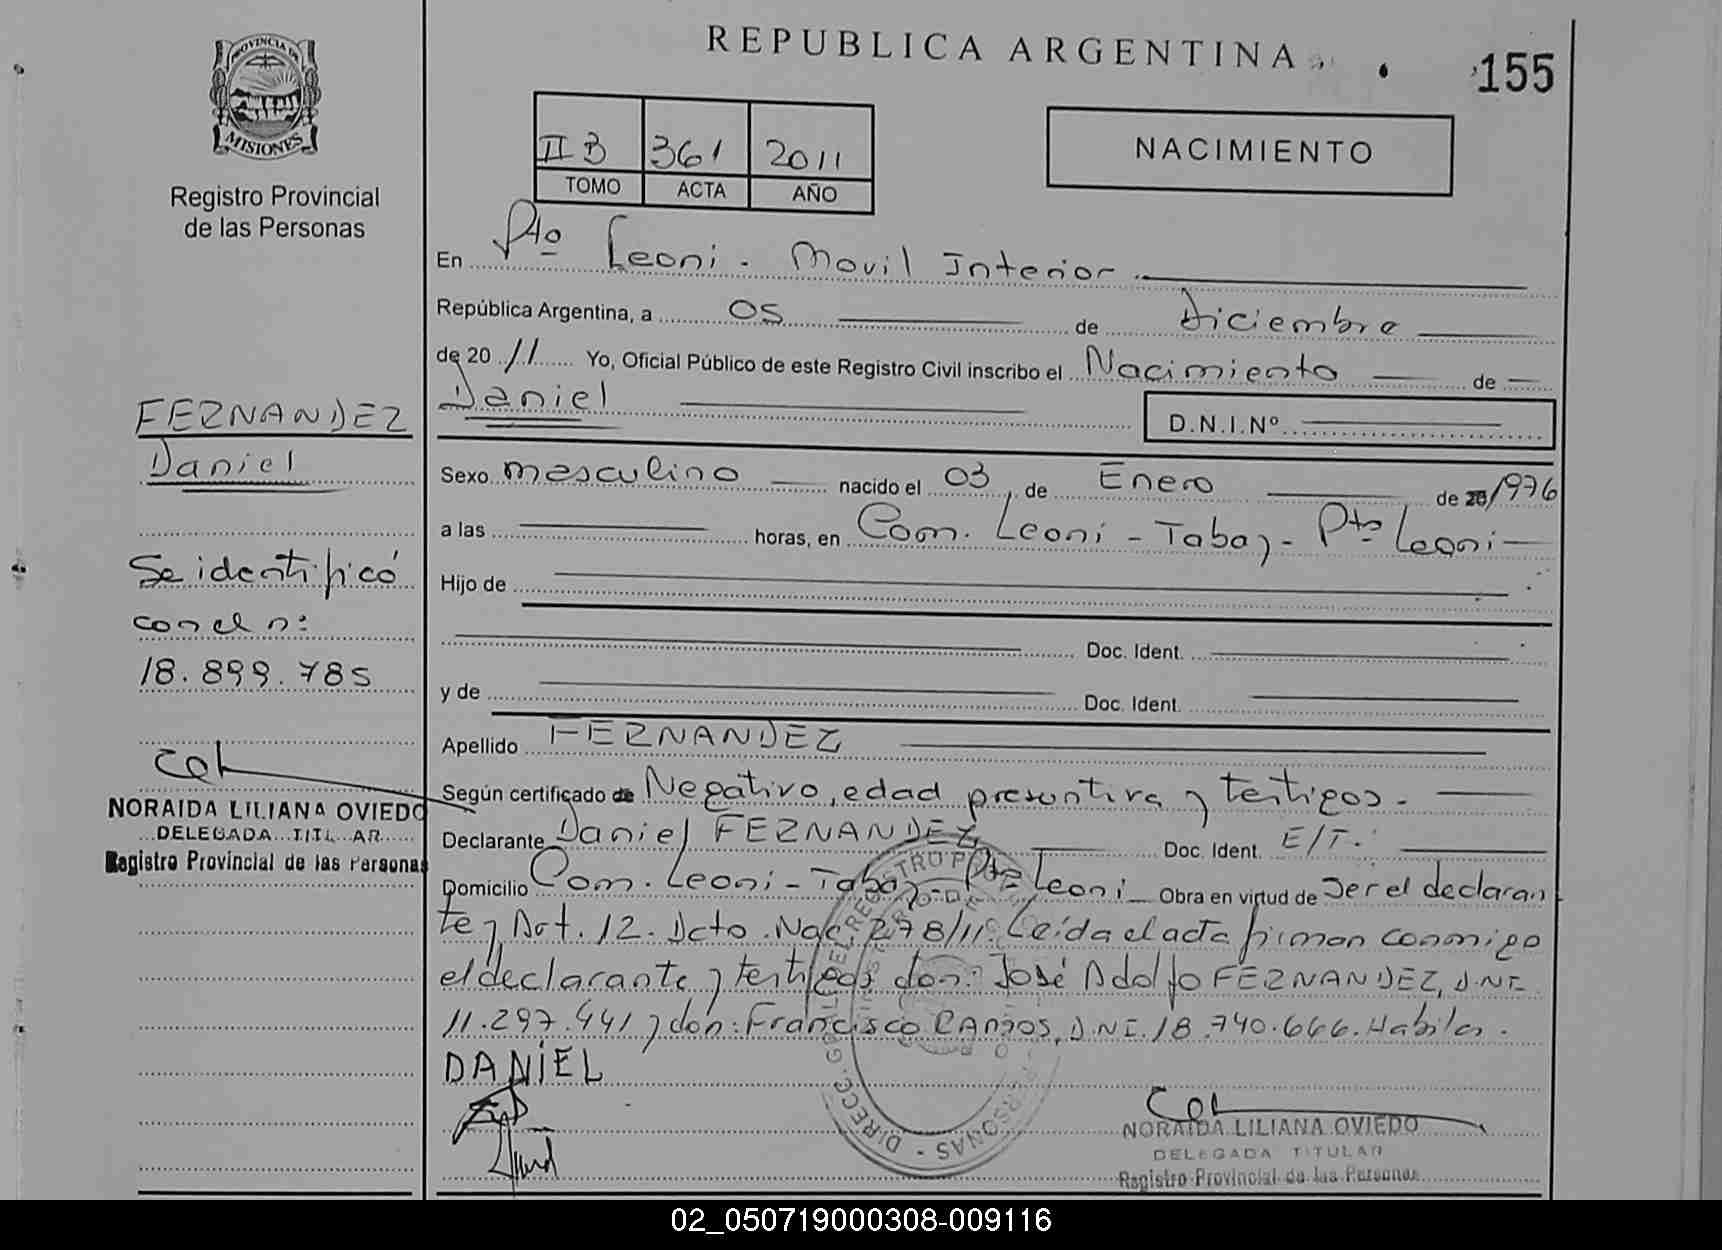 REPUBLICA ARGENTINA
155
PROVINCIA DE
MISIONES
Registro Provincial
de las Personas
II B 361 2011
TOMO ACTA AÑO
NACIMIENTO
En Pto Leoni - Movil Interior
República Argentina, a 05 de Diciembre
de 2011 Yo, Oficial Público de este Registro Civil inscribo el Nacimiento de
Daniel
D.N.I.Nº
Sexo masculino nacido el 03 de Enero de 1976
a las horas, en Com. Leoni - Tabay - Pto Leoni
Hijo de
Doc. Ident.
y de Doc. Ident.
Apellido FERNANDEZ
Según certificado de Negativo, edad presuntiva y testigos.
Declarante Daniel FERNANDEZ Doc. Ident. E/T.
Domicilio Com. Leoni - Tabay - Pto Leoni Obra en virtud de Ser el declaran
te y Art. 12. Dcto. Nac. 278/11. Leída el acta firman conmigo
el declarante y testigos don: José Adolfo FERNANDEZ, D.N.I.
11.297.441 y don: Francisco D.N.I. 18.740.666. Habiles.
DANIEL
NORAIDA LILIANA OVIEDO
DELEGADA TITULAR
Registro Provincial de las Personas
FERNANDEZ
Daniel
Se identificó
con el n:
18.899.785
NORAIDA LILIANA OVIEDO
DELEGADA TITULAR
Registro Provincial de las Personas
02_050719000308-009116